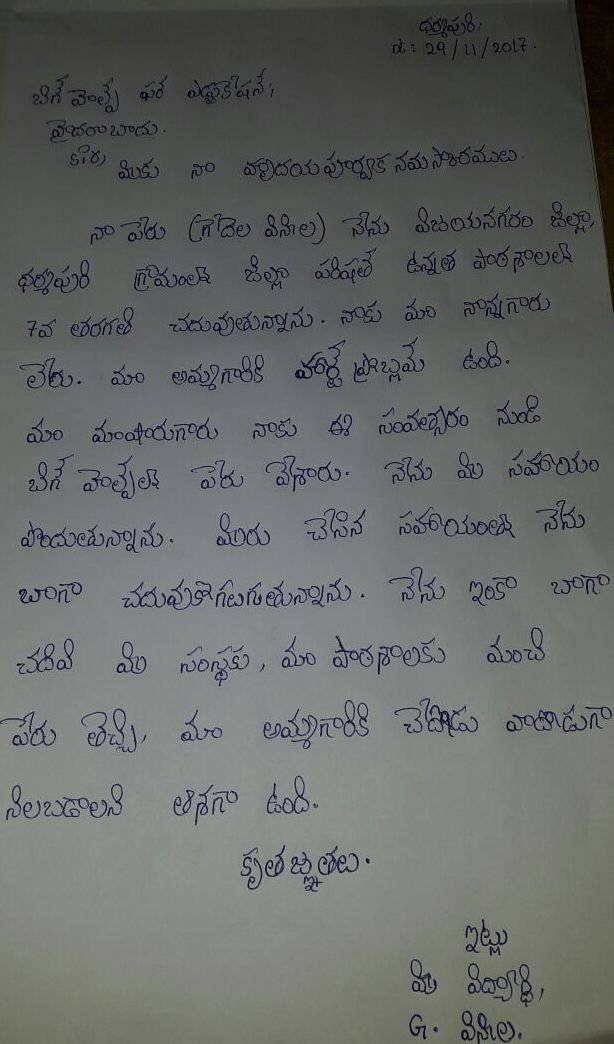 ధర్మపురి,
dt: 29/11/2017.
బిగ్ హెల్ప్ ఫర్ ఎడ్యుకేషన్,
హైదరాబాదు.
సార్,
మీకు నా హృదయపూర్వక నమస్కారములు.
నా పేరు (గొదెల వినీల) నేను విజయనగరం జిల్లా,
ధర్మపురి గ్రామంలో జిల్లా పరిషత్ ఉన్నత పాఠశాలలో
7వ తరగతి చదువుతున్నాను. నాకు మా నాన్నగారు
లేరు. మా అమ్మగారికి హార్ట్ ప్రాబ్లమ్ ఉంది.
మా మాష్టారుగారు నాకు ఈ సంవత్సరం నుండి
బిగ్ హెల్ప్‌లో పేరు వేశారు. నేను మీ సహాయం
పొందుతున్నాను. మీరు చేసిన సహాయంతో నేను
బాగా చదువుకోగలుగుతున్నాను. నేను ఇంకా బాగా
చదివి మీ సంస్థకు, మా పాఠశాలకు మంచి
పేరు తెచ్చి, మా అమ్మగారికి చేదోడు వాదోడుగా
నిలబడాలని ఆశగా ఉంది.
కృతజ్ఞతలు.
ఇట్లు
మీ విద్యార్థి,
G. వినీల.